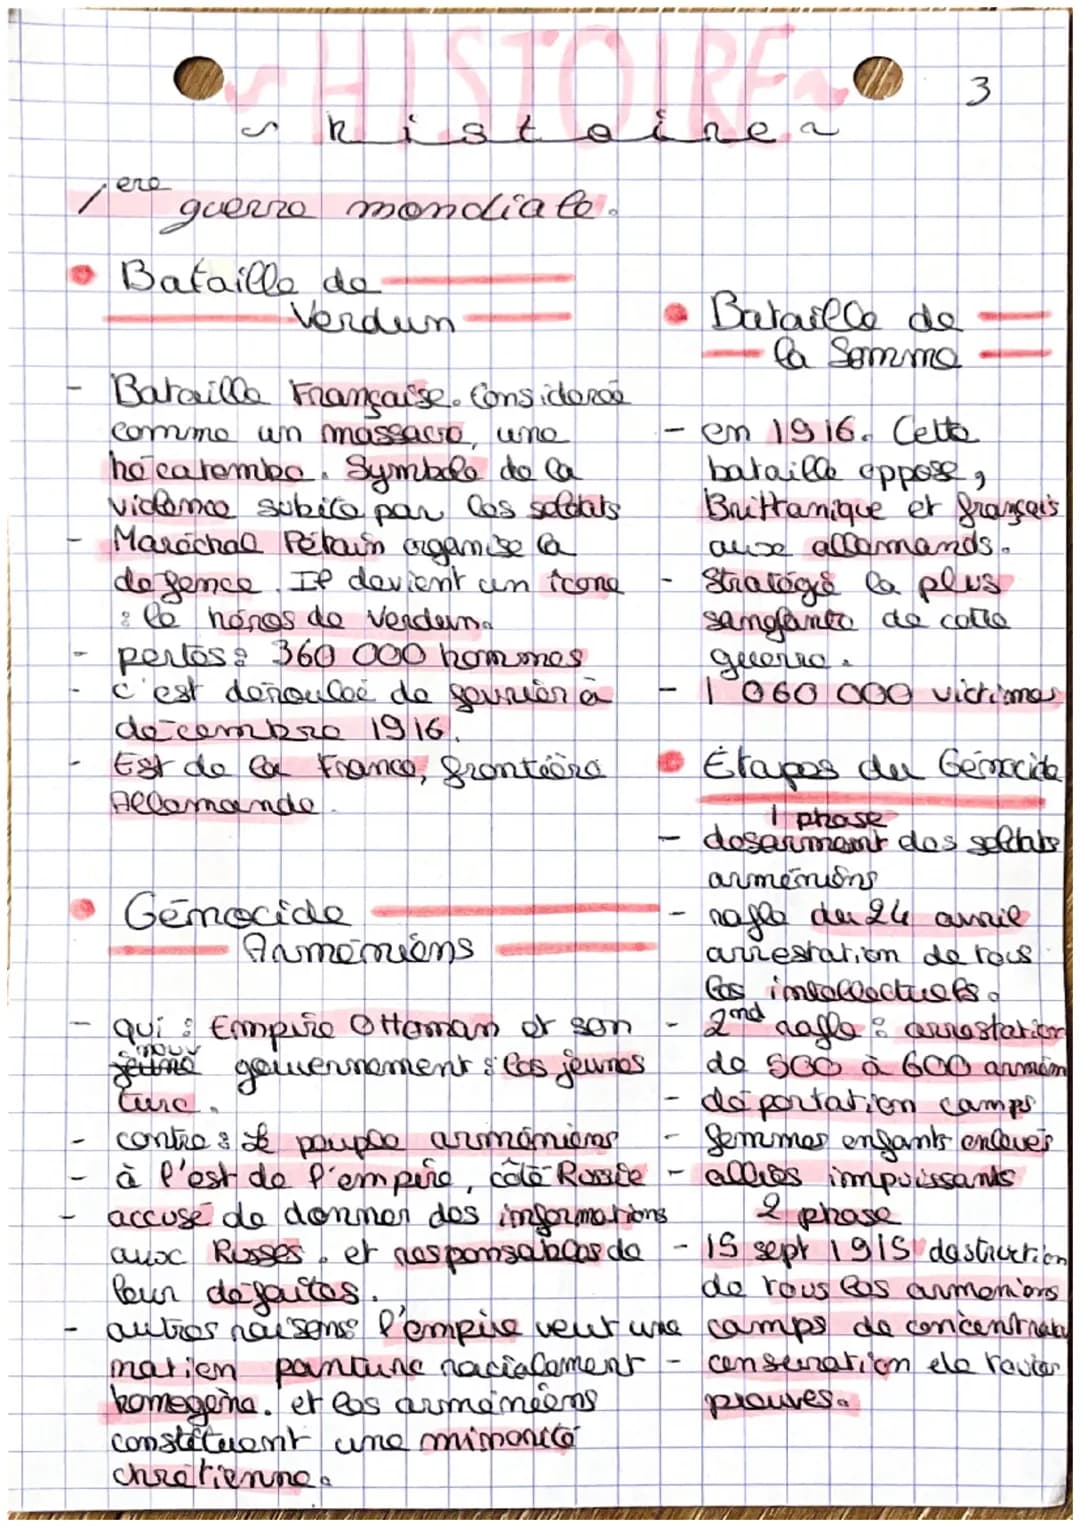 ~ HISTOIRE ~
3
~ histoire ~
1ere guerre mondiale.
• Bataille de
Verdun
- Bataille Française. Considerée
comme un massacre, une
hécatombe. Symbole de la
violence subite par les soldats
- Maréchal Pétain organise la
défence. Il devient un icone
: le héros de Verdun.
- pertes : 360 000 hommes
- c'est déroulée de fevrier à
décembre 1916.
- Est de la France, frontière
Allemande.
• Génocide
Arméniens
- qui : Empire Ottoman et son
nouv
jeune gouvernement : les jeunes
turc.
- contre : le peuple arméniens
- à l'est de l'empire, côté Russie
- accusé de donner des informations
aux Russes. et responsables de
leur défaites.
- autres raisons : l'empire veut une
nation panturc racialement
homogène. et les arméniens
constituent une minorité
chrétienne.
• Bataille de
la Somme
- en 1916. Cette
bataille oppose,
Brittanique et français
aux allemands.
- Stratégie la plus
sanglante de cette
guerre.
- 1 060 000 victimes
• Étapes du Génocide
1 phase
- desarment des soldats
arméniens
- rafle du 24 avril
arrestation de tous
les intellectuels.
- 2nd rafle : arrestation
de 500 à 600 armén
- déportation camps
- femmes enfants enlevés
- alliés impuissants
2 phase
- 15 sept 1915 destruction
de tous les armeniens
camps de concentrat
- conservation de toutes
preuves.